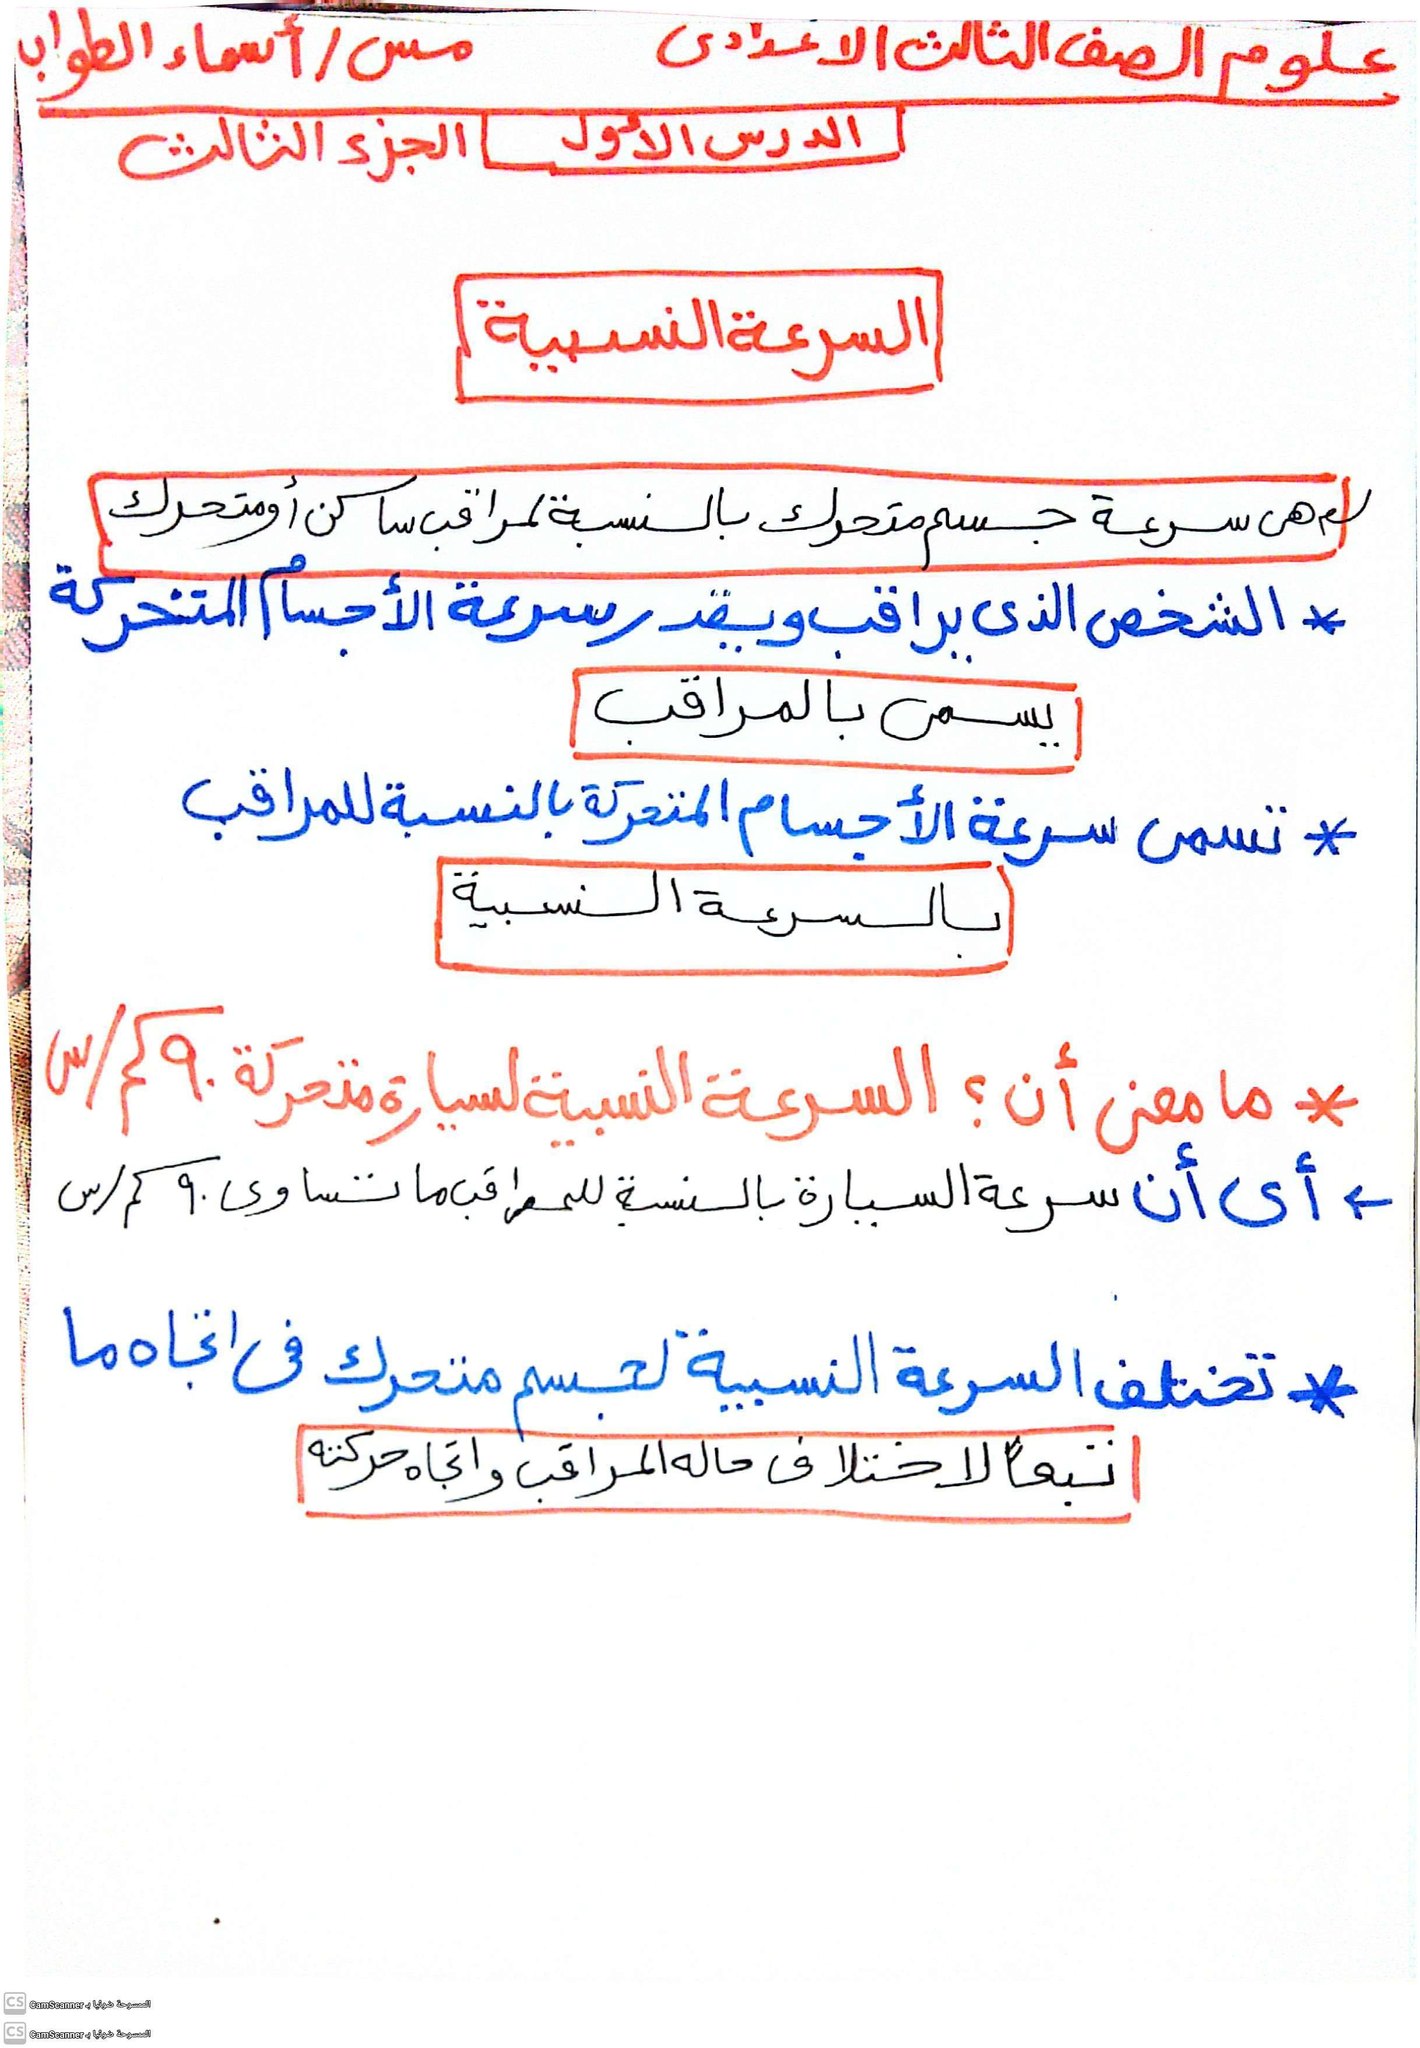 علوم الصف الثالث الاعدادى مس/أسماء الطواب
الدرس الأول الجزء الثالث
السرعة النسبية
هى سرعة جسم متحرك بالنسبة لمراقب ساكن أو متحرك
* الشخص الذى يراقب ويقدر سرعة الأجسام المتحركة
يسمى بالمراقب
* تسمى سرعة الأجسام المتحركة بالنسبة للمراقب
بالسرعة النسبية
* ما معنى أن؟ السرعة النسبية لسيارة متحركة ٩٠ كم/س
← أى أن سرعة السيارة بالنسبة للمراقب ما تساوى ٩٠ كم/س
* تختلف السرعة النسبية لجسم متحرك فى اتجاه ما
تبعاً لاختلاف حاله المراقب واتجاه حركته
CS الممسوحة ضوئيا بـ CamScanner
CS الممسوحة ضوئيا بـ CamScanner